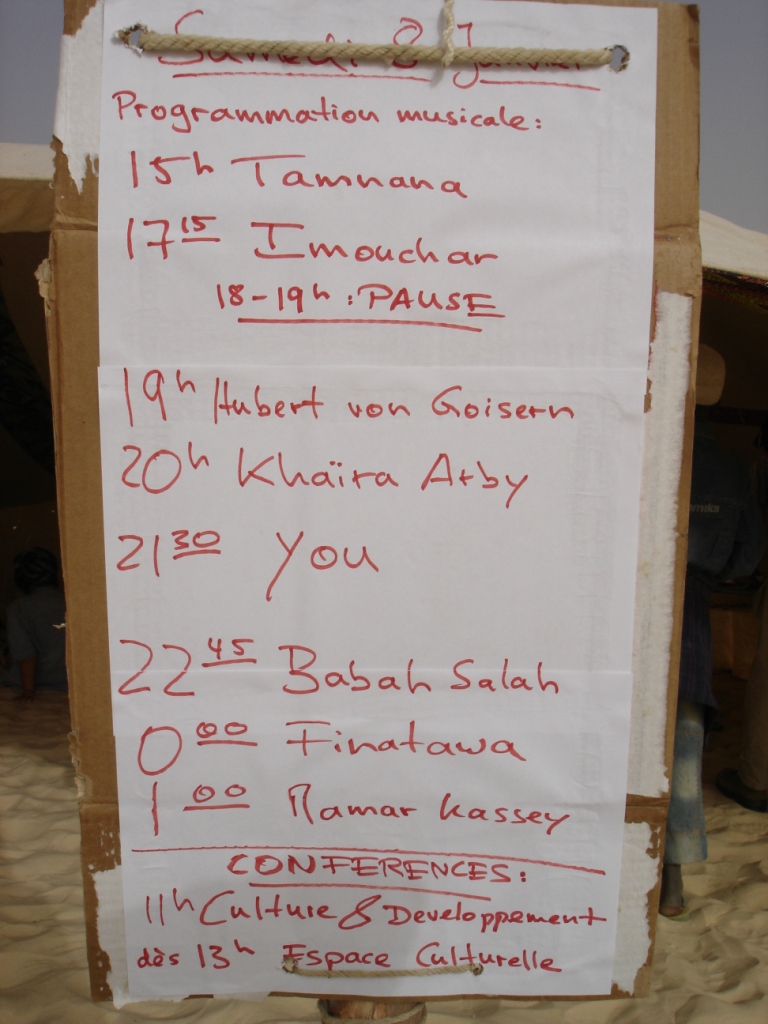 Samedi 8 Janvier
Programmation musicale:
15h Tamnana
17 15 Imouchar
18-19h: PAUSE
19h Hubert von Goisern
20h Khaïra Arby
21 30 You
22 45 Babah Salah
0 00 Finatawa
1 00 Mamar Kassey
CONFERENCES:
11h Culture & Developpement
dès 13h Espace Culturelle